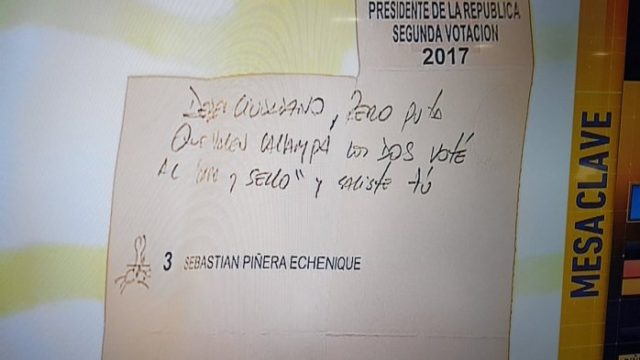 PRESIDENTE DE LA REPUBLICA
SEGUNDA VOTACION
2017
DEBER CIUDADANO, PERO PUTA
QUE VALEN CALLAMPA LOS DOS VOTÉ
AL "CARA Y SELLO" Y SALISTE TÚ
3 SEBASTIAN PIÑERA ECHENIQUE
MESA CLAVE